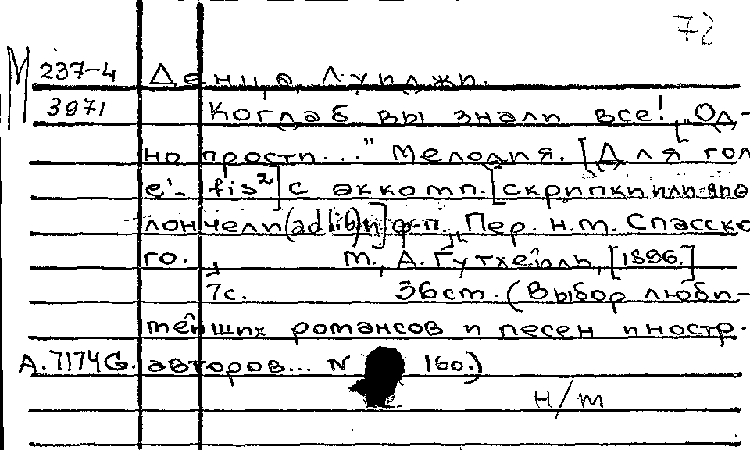 72
М 237-4 Денца, Луиджи.
3971 Когда б вы знали все! „Од-
но прости..." Мелодия. [Для гол.
e'- fis²] с аккомп. [скрипки или виo
лончели (ad lib) и] ф-п. Пер. н.т. Спасско
го. М., А. Гутхейль, [1896.]
7с. 36ст. (Выбор люби-
мейших романсов и песен иностр.
А.7174G. авторов... N 160.)
н/т